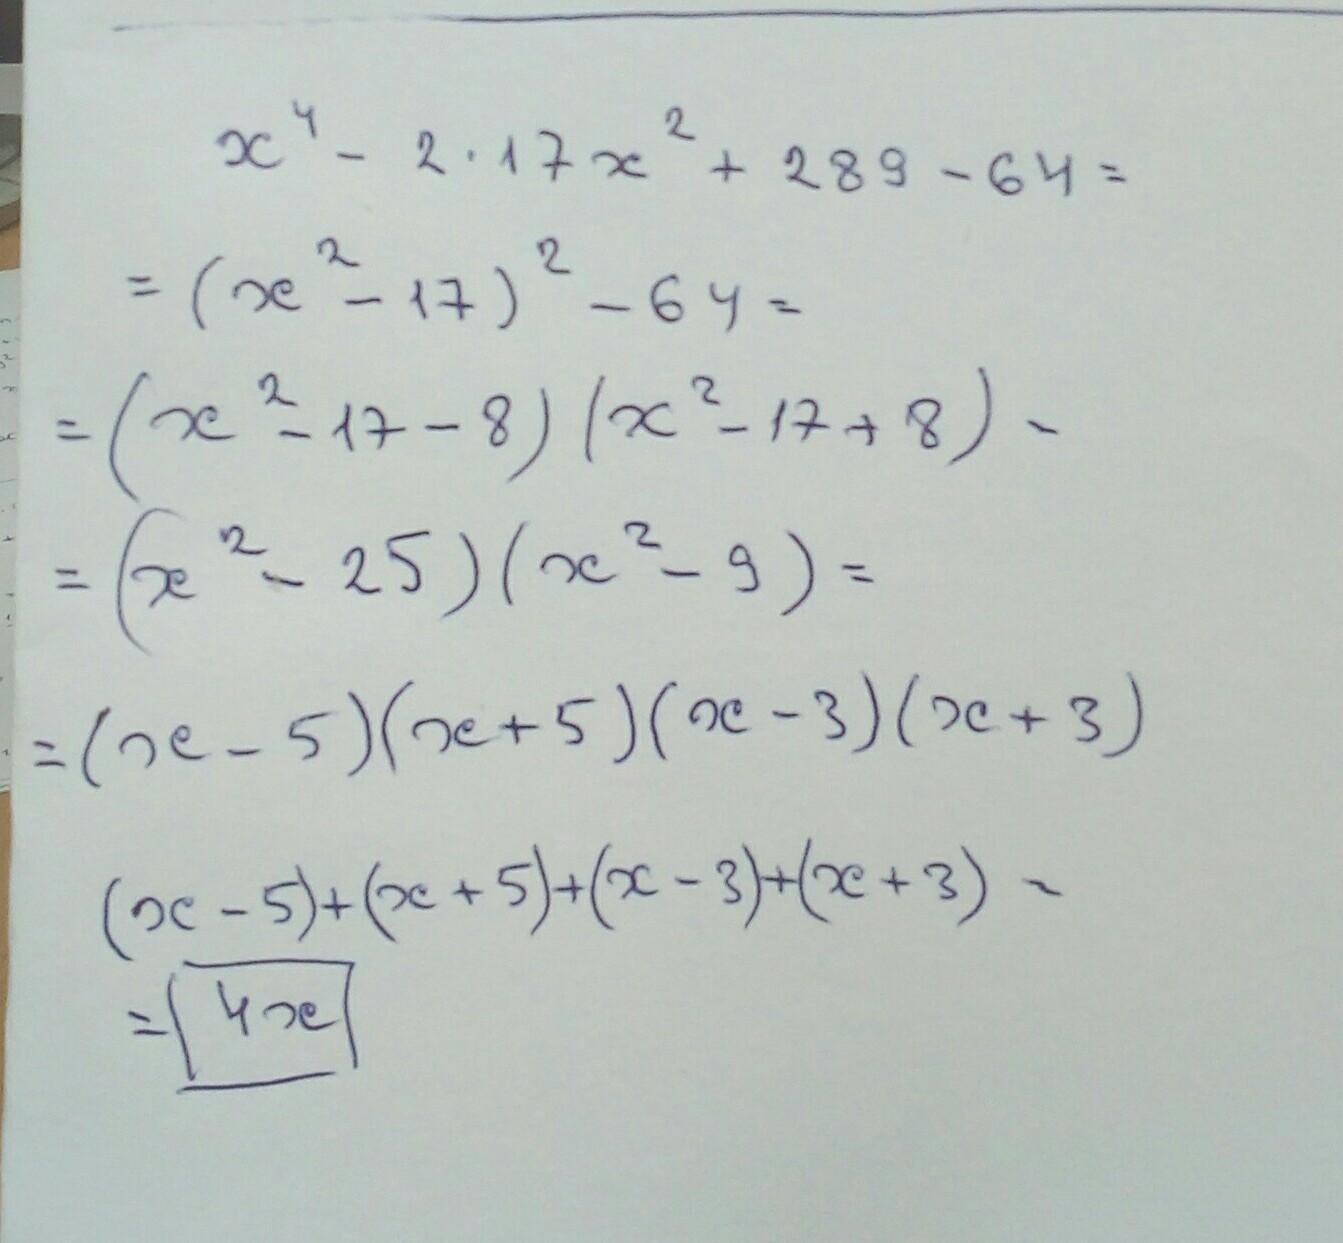 x⁴ - 2·17x² + 289 - 64 =
= (x² - 17)² - 64 =
= (x² - 17 - 8)(x² - 17 + 8) -
= (x² - 25)(x² - 9) =
= (x - 5)(x + 5)(x - 3)(x + 3)
(x - 5)+(x + 5)+(x - 3)+(x + 3) -
= 4x